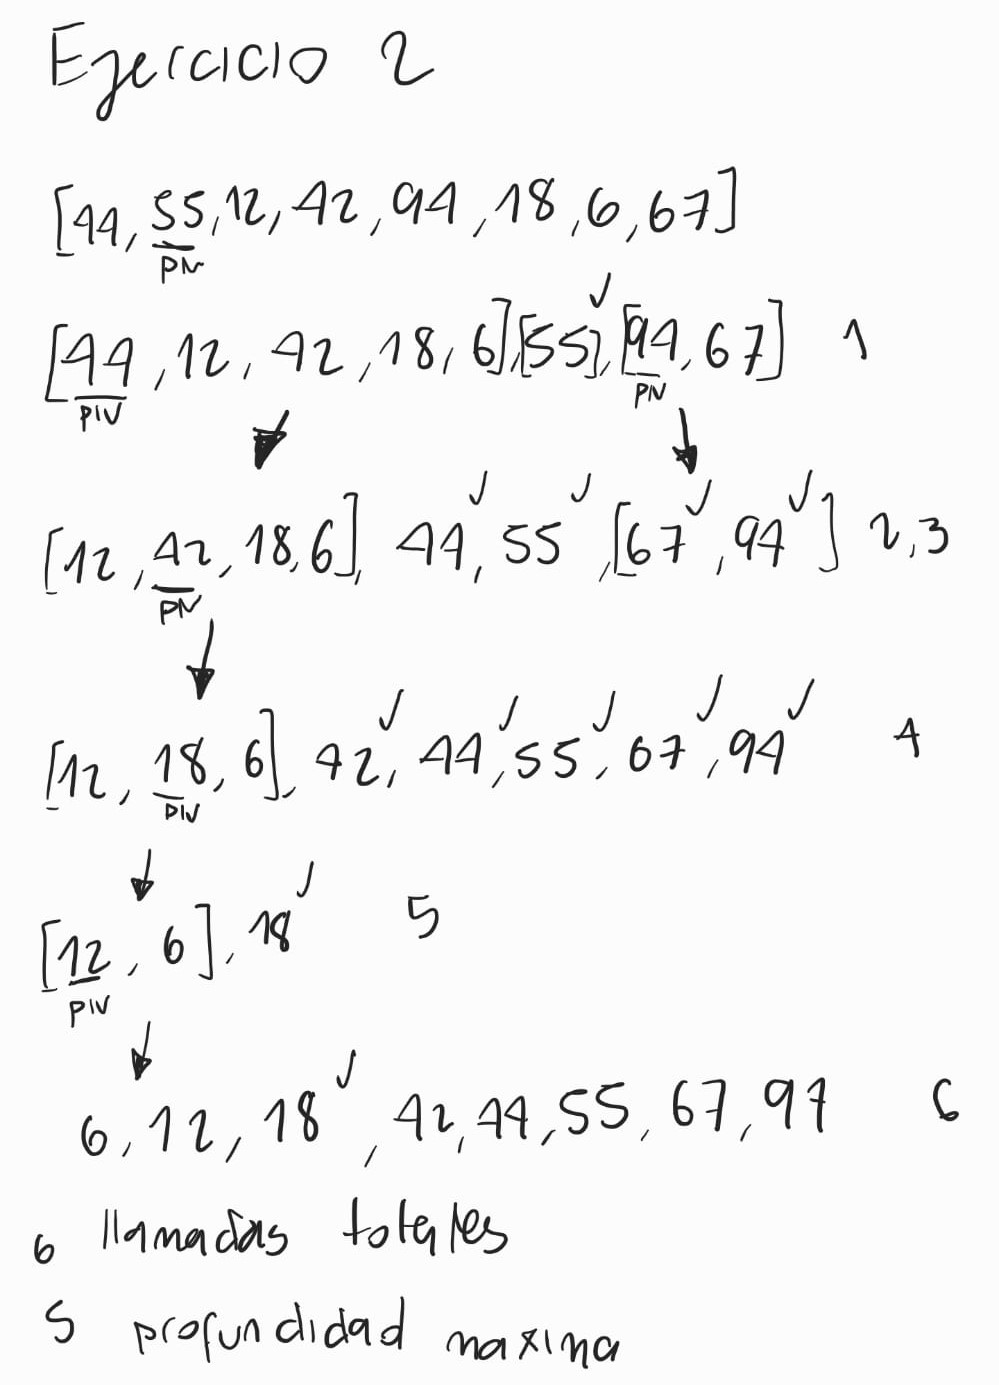 Ejercicio 2
[44, 55, 12, 42, 94, 18, 6, 67]
PIV
[44, 12, 42, 18, 6], [55], [94, 67] 1
PIV PIV
[12, 42, 18, 6], 44, 55, [67, 94] 2,3
PIV
[12, 18, 6], 42, 44, 55, 67, 94 4
PIV
[12, 6], 18 5
PIV
6, 12, 18, 42, 44, 55, 67, 94 6
6 llamadas totales
5 profundidad maxima